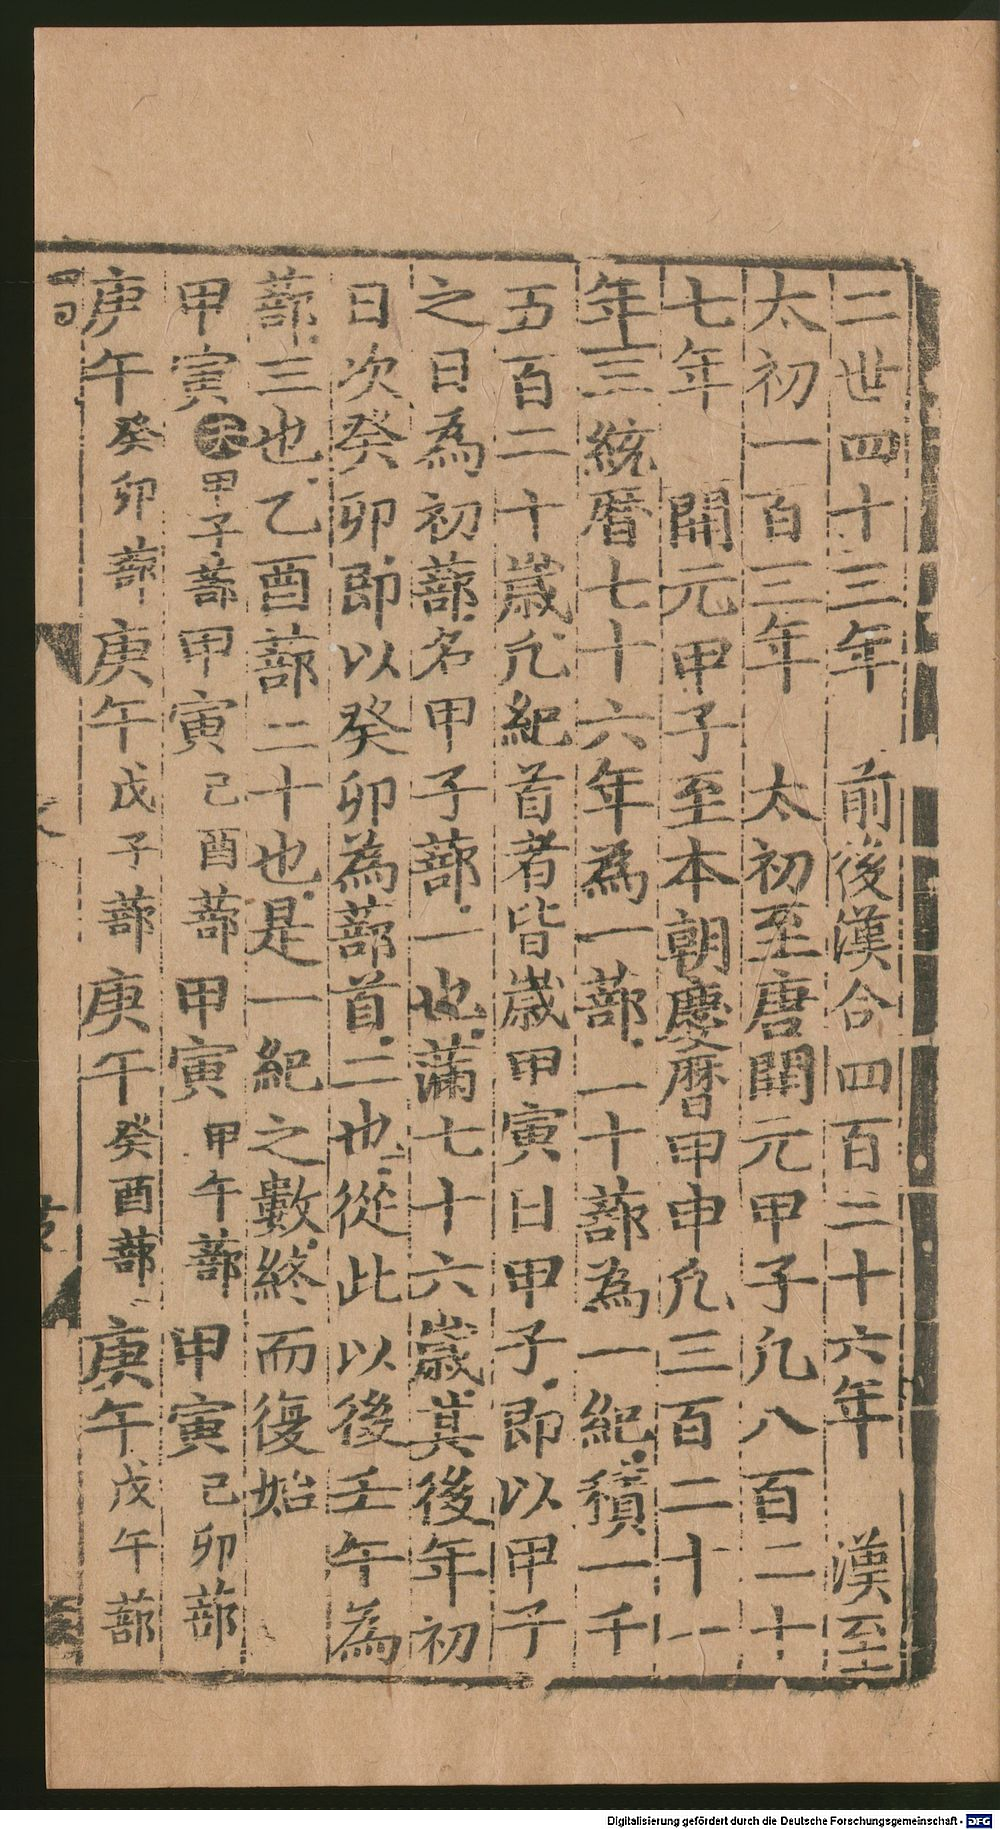 二世四十三年　前後漢合四百二十六年　漢至
太初一百三年　太初至唐開元甲子凡八百二十
七年　開元甲子至本朝慶曆甲申凡三百二十一
年三統曆七十六年為一蔀二十蔀為一紀積一千
五百二十歲凡紀首者皆歲甲寅日甲子即以甲子
之日為初蔀名甲子蔀一也滿七十六歲其後年初
日次癸卯即以癸卯為蔀首二也從此以後壬午為
蔀三也乙酉蔀二十也是一紀之數終而復始
甲寅 甲子蔀 甲寅 己酉蔀 甲寅 甲午蔀 甲寅 己卯蔀
庚午 癸卯蔀 庚午 戊子蔀 庚午 癸酉蔀 庚午 戊午蔀
Digitalisierung gefördert durch die Deutsche Forschungsgemeinschaft - DFG